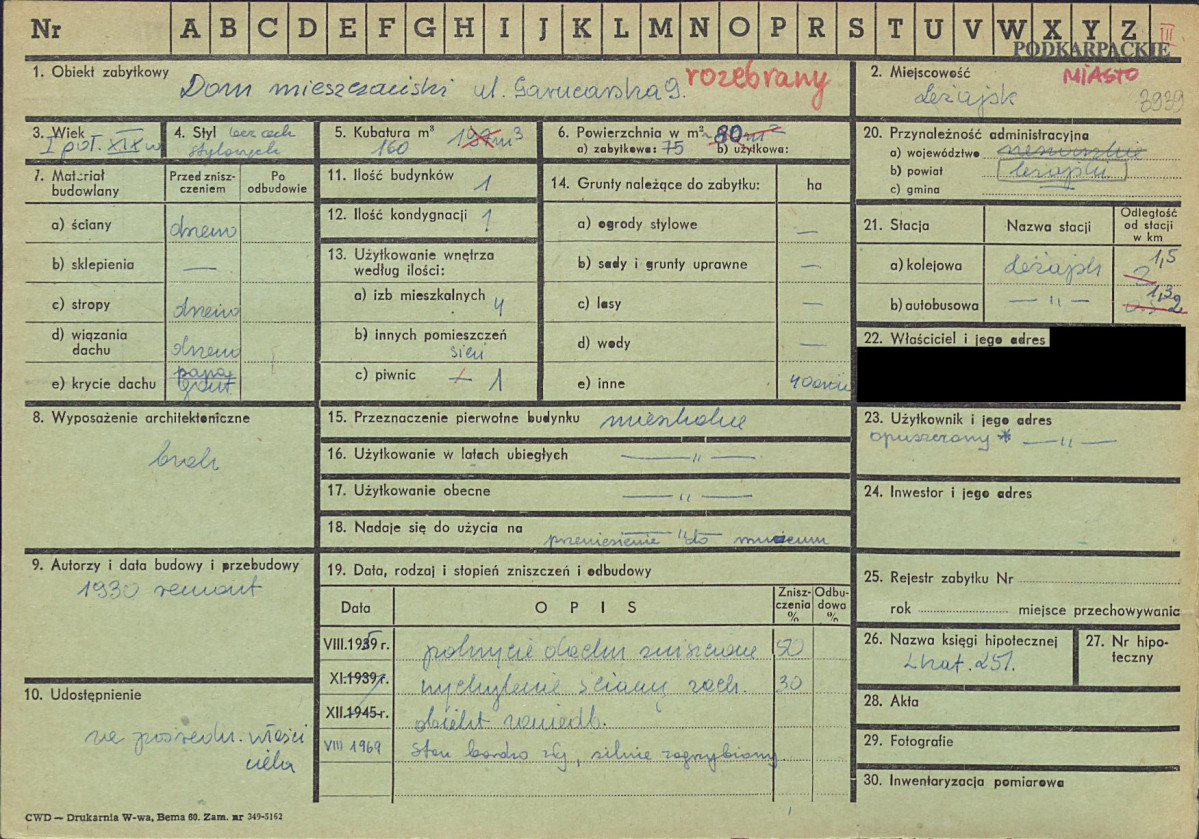 Nr A B C D E F G H I J K L M N O P R S T U V W X Y Z III
PODKARPACKIE
1. Obiekt zabytkowy Dom mieszczański ul. Garncarska 9. rozebrany
2. Miejscowość MIASTO
Leżajsk 3939
3. Wiek
I poł. XIX w
4. Styl bez cech
stylowych
5. Kubatura m³ m³
160
6. Powierzchnia w m² 80 m²
a) zabytkowa: 75 b) użytkowa:
20. Przynależność administracyjna
a) województwo rzeszowskie
b) powiat leżajski
c) gmina
7. Materiał budowlany
Przed zniszczeniem
Po odbudowie
a) ściany drewno
b) sklepienia —
c) stropy drewno
d) wiązania dachu drewno
e) krycie dachu papa
gont
11. Ilość budynków 1
12. Ilość kondygnacji 1
13. Użytkowanie wnętrza
według ilości:
a) izb mieszkalnych 4
b) innych pomieszczeń
sień
c) piwnic 1
14. Grunty należące do zabytku: ha
a) ogrody stylowe —
b) sady i grunty uprawne —
c) lasy —
d) wody —
e) inne
21. Stacja Nazwa stacji Odległość
od stacji
w km
a) kolejowa Leżajsk 1,5
b) autobusowa — „ — 1,3
22. Właściciel i jego adres
8. Wyposażenie architektoniczne
brak
15. Przeznaczenie pierwotne budynku mieszkalne
16. Użytkowanie w latach ubiegłych — „ —
17. Użytkowanie obecne — „ —
18. Nadaje się do użycia na — „ —
przeniesienie do muzeum
23. Użytkownik i jego adres
opuszczony * — „ —
24. Inwestor i jego adres
9. Autorzy i data budowy i przebudowy
1930 remont
19. Data, rodzaj i stopień zniszczeń i odbudowy
Data OPIS Zniszczenia % Odbudowa %
VIII.1939 r. pokrycie dachu zniszczone 50
XI.1939 r. wychylenie ściany zach. 30
XII.1945 r. obiekt zaniedb.
VIII 1969 Stan bardzo zły, silnie zagrzybiony.
25. Rejestr zabytku Nr
rok miejsce przechowywania
26. Nazwa księgi hipotecznej
Lhat. 251.
27. Nr hipoteczny
10. Udostępnienie
za pośredn. właści
ciela
28. Akta
29. Fotografie
30. Inwentaryzacja pomiarowa
CWD — Drukarnia W-wa, Bema 60. Zam. nr 349-5162